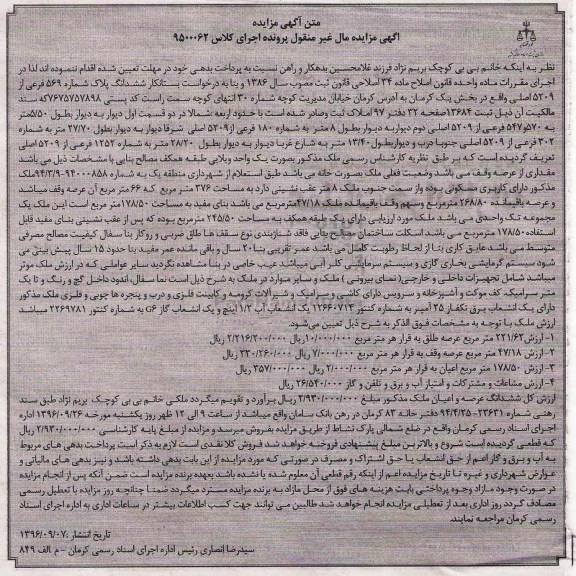 متن آگهی مزایده
آگهی مزایده مال غیر منقول پرونده اجرای کلاس ۹۵۰۰۰۶۲
نظر به اینکه خانم بی بی کوچک بریم نژاد فرزند غلامحسین بدهکار و راهن نسبت به پرداخت بدهی خود در مهلت تعیین شده اقدام ننموده اند لذا در
اجرای مقررات ماده واحده قانون اصلاح ماده ۳۴ اصلاحی قانون ثبت مصوب سال ۱۳۸۶ و بنا به درخواست بستانکار ششدانگ پلاک شماره ۵۶۹ فرعی از
۵۲۰۹ اصلی واقع در بخش یک کرمان به آدرس کرمان خیابان مدیریت کوچه شماره ۳۰ انتهای کوچه سمت راست کد پستی ۷۶۷۵۷۵۷۸۹۸که سند
مالکیت آن ذیل ثبت ۱۳۶۸۴صفحه ۳۲ دفتر ۹۷ املاک ثبت وصادر شده است با حدود اربعه :شمالا در دو قسمت اول دیوار به دیوار بطول ۵/۵۰متر
به ۵۷۰و۵۴۷ فرعی از ۵۲۰۹ اصلی دوم دیواربه دیوار بطول ۸ متر به شماره ۱۸۰ فرعی از۵۲۰۹ اصلی شرقا دیوار به دیوار بطول ۲۷/۷۰ متر به شماره
۳۰۲ فرعی از ۵۲۰۹ اصلی جنوبا درب و دیواربطول ۱۳/۴۰ متر به شارع غربا دیوار به دیوار بطول ۲۸/۲۰ متر به شماره ۱۲۵۲ فرعی از ۵۲۰۹ اصلی
تعریف گردیده است که بر طبق نظریه کارشناس رسمی ملک مذکور بصورت یک واحد ویلایی طبقه همکف مصالح بنایی با مشخصات ذیل می باشد
مقداری از عرصه وقف می باشد وضعیت فعلی ملک بصورت خانه می باشد طبق استعلام از شهرداری منطقه یک به شماره ۹۴۰۰۰۸۵۸-۹۴/۳/۹ملک
مذکور دارای کاربری مسکونی بوده واز سمت جنوب ملک ۸ متر عقب نشینی دارد به مساحت ۳۷۶ متر مربع که ۶۶ متر مربع آن عرصه وقف میباشد
و عرصه باقیمانده ۲۶۸/۸۰ مترمربع وسهم وقف باقیمانده ملک ۴۷/۱۸مترمربع می باشد بنای مفید به مساحت ۱۷۸/۵۰ متر مربع است این ملک یک
مجموعه تک واحدی می باشد ملک مورد ارزیابی دارای یک طبقه همکف به مساحت ۲۴۵/۵۰ مترمربع بوده که پس از عقب نشینی بنای مفید قابل
استفاده ۱۷۸/۵۰مترمربع می باشد اسکلت ساختمان مصالح بنایی فاقد شناژبندی نوع سقف ها طاق ضربی و روکار بنا سفال کیفیت مصالح مصرفی
متوسط می باشد عایق کاری بنا از لحاظ رطوبت کامل می باشد عمر تقریبی بنا۲۰ سال و باقی مانده عمر مفید بنا حدود ۱۵ سال پیش بینی می
شود سیستم گرمایشی بخاری گازی و سیستم سرمایشی کلر آبی میباشد عیب خاصی در بنا مشاهده نگردید سایر عواملی که در ارزش ملک موثر
میباشد شامل تجهیزات داخلی و خارجی( نمای بیرونی ) ملک و سایر موارد در ملک به شرح ذیل است نما سفال، اندود داخل گچ و رنگ و تا یک
متر سرامیک، کف موکت و آشپزخانه و سرویس دارای کاشی و سرامیک و شیرآلات کرومه و کابینت فلزی و درب و پنجره ها چوبی و فلزی ملک مذکور
دارای یک انشعاب برق تکفاز ۲۵ آمپر به شماره کنتور ۱۲۶۶۰۷۱۳ یک انشعاب آب ۱/۲ اینچ و یک انشعاب گاز G۶ به شماره کنتور ۲۲۶۹۷۸۱ میباشد
ارزش ملک با توجه به مشخصات فوق الذکر به شرح ذیل تعیین می‌شود.
۱- ارزش۲۲۱/۶۲ متر مربع عرصه طلق به قرار هر متر مربع ۱۰/۰۰۰/۰۰۰ریال ۲/۲۱۶/۲۰۰/۰۰۰ ریال
۲- ارزش ۴۷/۱۸ متر مربع عرصه وقف به قرار هر متر مربع ۷/۰۰۰/۰۰۰ ریال ۳۳۰/۲۶۰/۰۰۰ ریال
۳- ارزش ۱۷۸/۵۰ متر مربع اعیان به قرار هر متر مربع ۲/۰۰۰/۰۰۰ ریال ۳۵۷/۰۰۰/۰۰۰ ریال
۴- ارزش مشاعات و مشترکات و امتیاز آب و برق و تلفن و گاز ۲۶/۵۴۰/۰۰۰ ریال
ارزش کل ششدانگ عرصه و اعیان ملک مذکور مبلغ ۲/۹۳۰/۰۰۰/۰۰۰ ریال برآورد و تقویم میگردد ملکی خانم بی بی کوچک بریم نژاد طبق سند
رهنی شماره ۲۳۶۳۱-۹۴/۴/۲۵ دفترخانه ۸۳ کرمان در رهن بانک سامان واقع میباشد از ساعت ۹ الی ۱۲ ظهر روز یکشنبه مورخه ۱۳۹۶/۰۹/۲۶ اداره
اجرای اسناد رسمی کرمان واقع در ضلع شمالی پارک نشاط از طریق مزایده بفروش میرسد و مزایده از مبلغ پایه کارشناسی ۲/۹۳۰/۰۰۰/۰۰۰ ریال
که قطعی گردیده است شروع و بالاترین مبلغ پیشنهادی فروخته خواهد شد فروش کلا نقدی است لازم به ذکر است پرداخت بدهی های مربوط
به آب و برق و گاز اعم از حق انشعاب یا حق اشتراک و مصرف در صورتی که مورد مزایده از این بابت بدهی داشته باشد و نیز بدهی های مالیاتی و
عوارض شهرداری و غیره تا تاریخ مزایده اعم از اینکه رقم قطعی آن معلوم شده یا نشده باشد بعهده برنده مزایده است ضمن آنکه پس از انجام مزایده
در صورت وجود مازاد وجوه پرداختی بابت هزینه های فوق از محل مازاد به برنده مزایده مسترد میگردد ضمنا چنانچه روز مزایده با تعطیل رسمی
مصادف گردد روز اداری بعد از تعطیلی مزایده انجام خواهد شد طالبین می توانند جهت کسب اطلاعات بیشتر در ساعات اداری به اداره اجرای اسناد
رسمی کرمان مراجعه نمایند
تاریخ انتشار :۱۳۹۶/۰۹/۰۷
سیدرضا انصاری رئیس اداره اجرای اسناد رسمی کرمان - م الف ۸۴۹